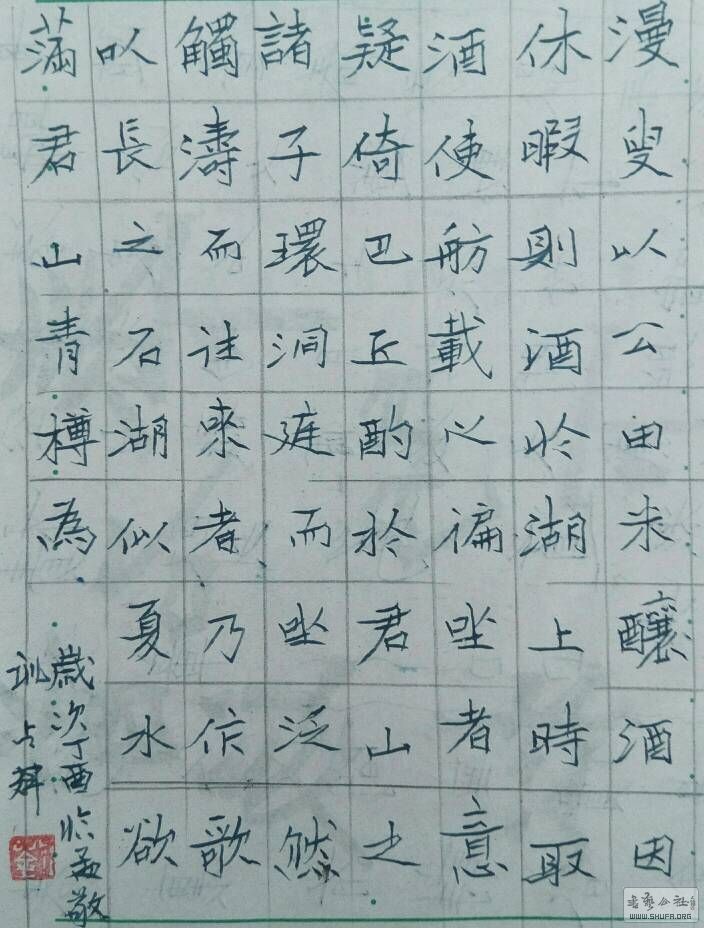 漫叟以公田米釀酒因
休暇則酒於湖上時取
酒使舫載之徧坐者意
疑倚巴丘酌於君山之
諸子環洞庭而坐泛然
觸濤而往來者乃作歌
以長之石湖似夏水欲
滿君山青樽為
歲次丁酉臨孟敬
訓占
书艺公社
WWW.SHUFA.ORG